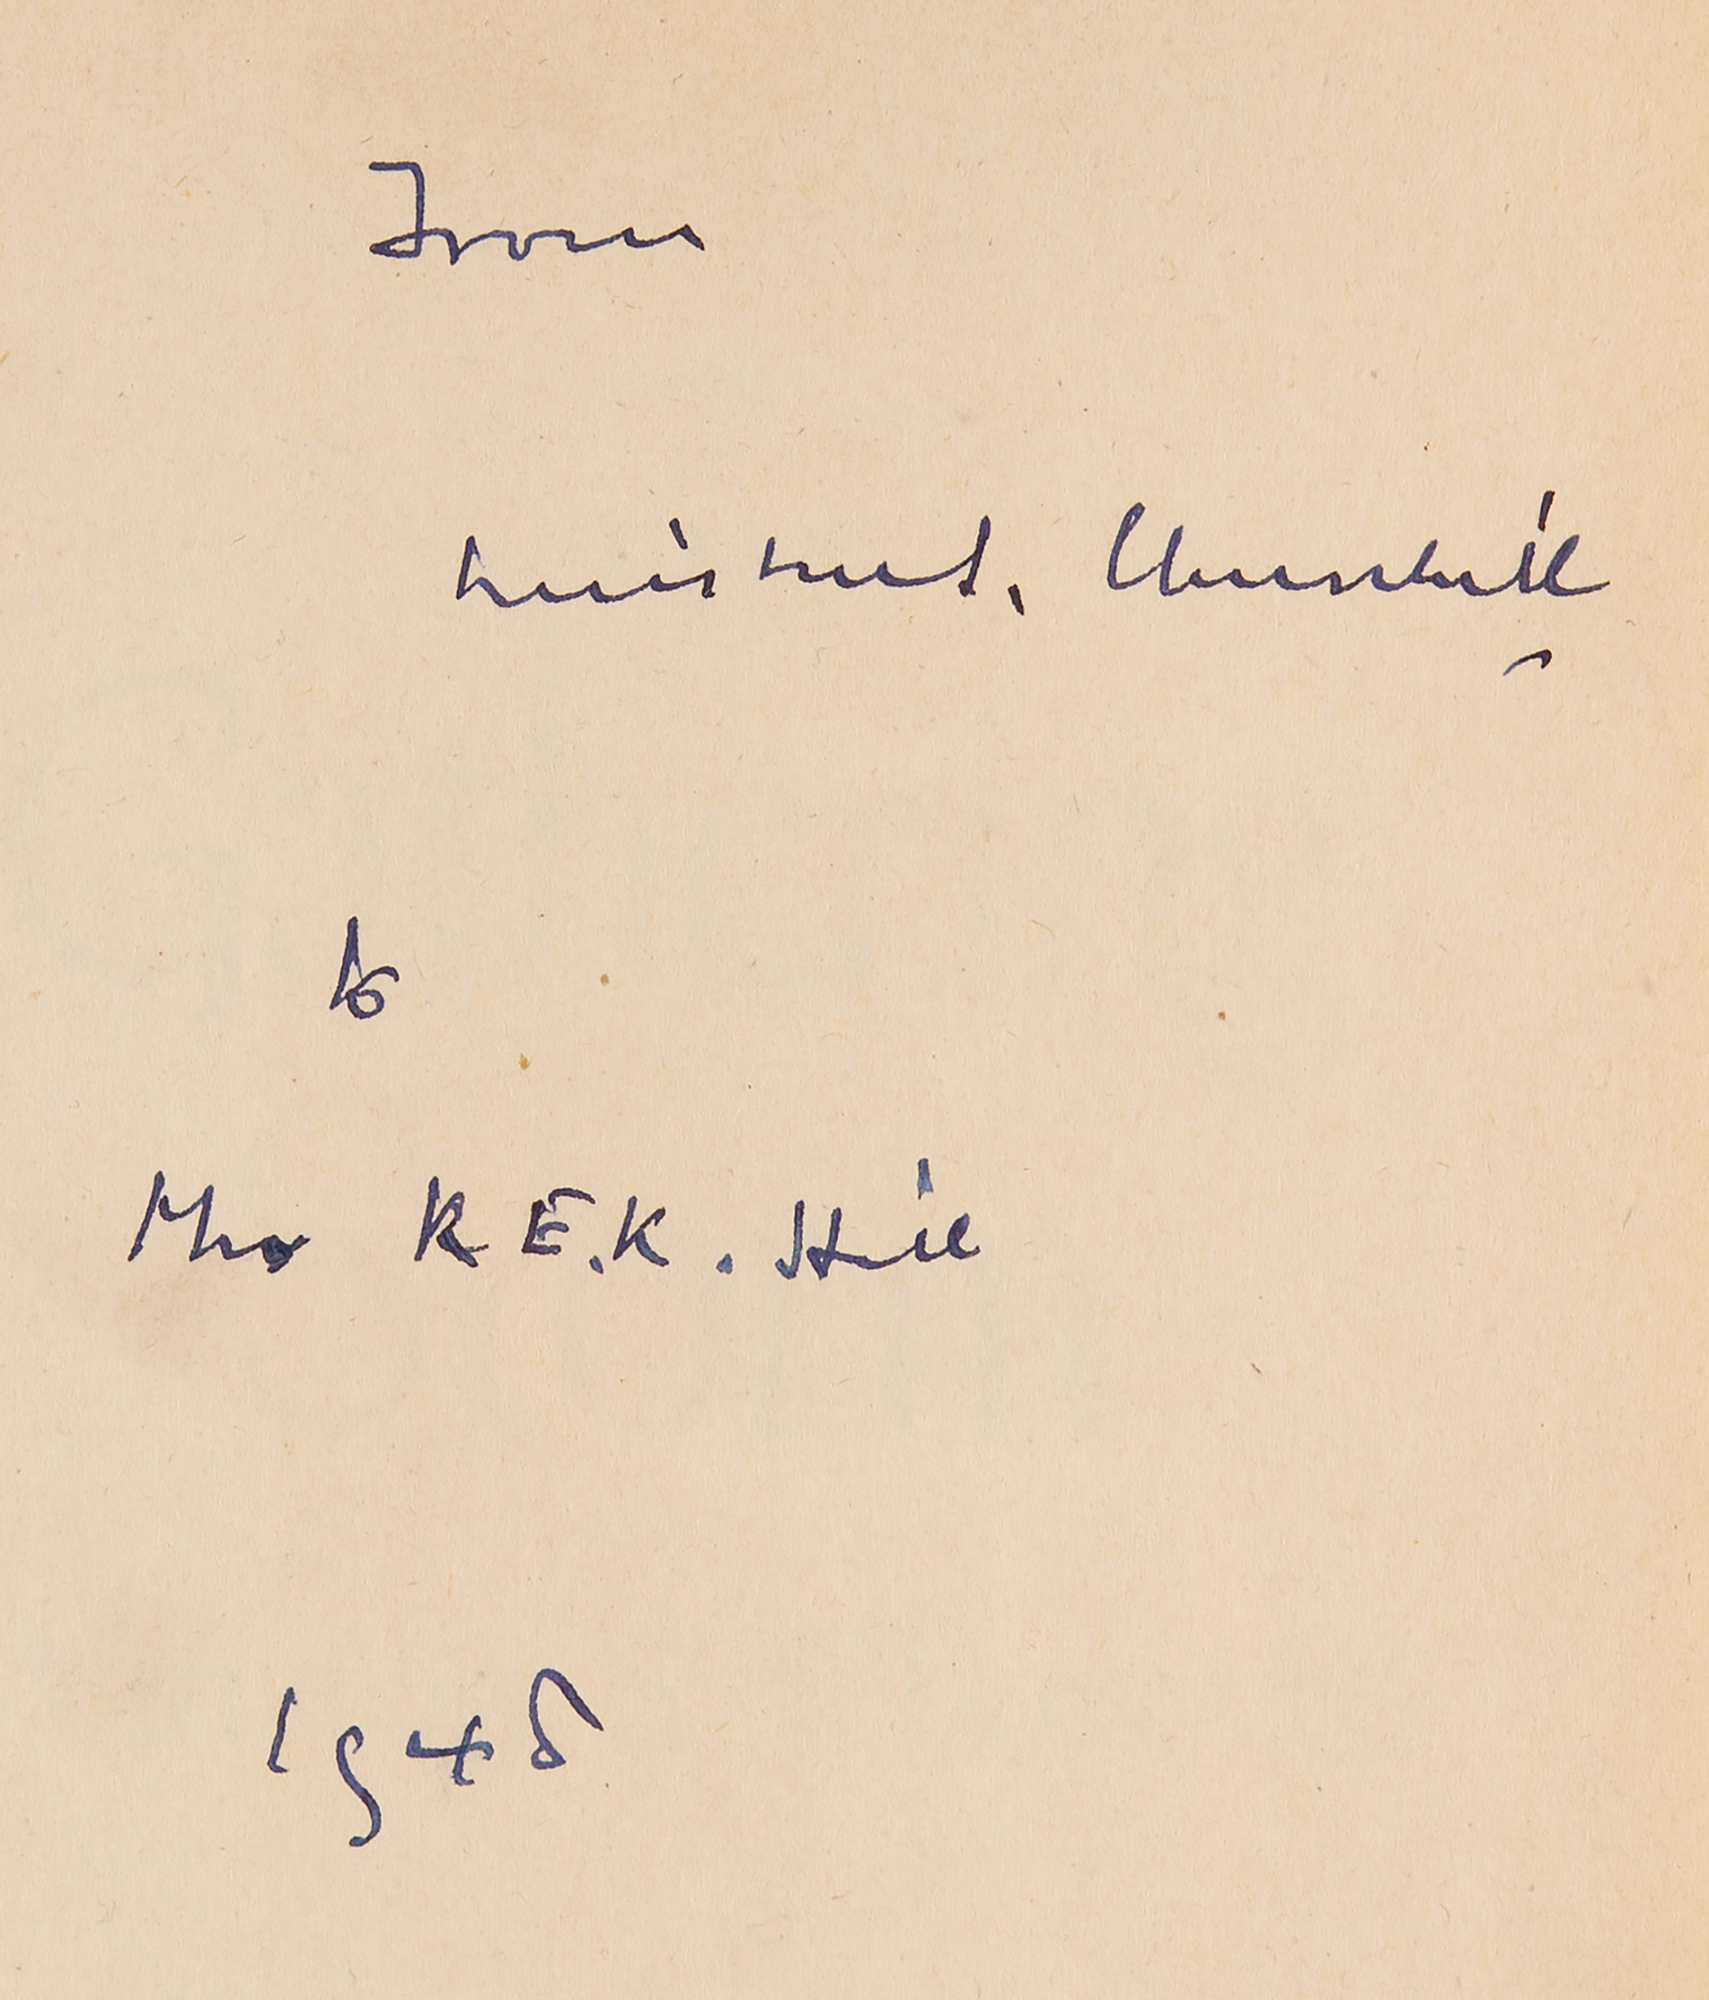 From
Winston S. Churchill
to
Mrs R E.K. Hill
1948